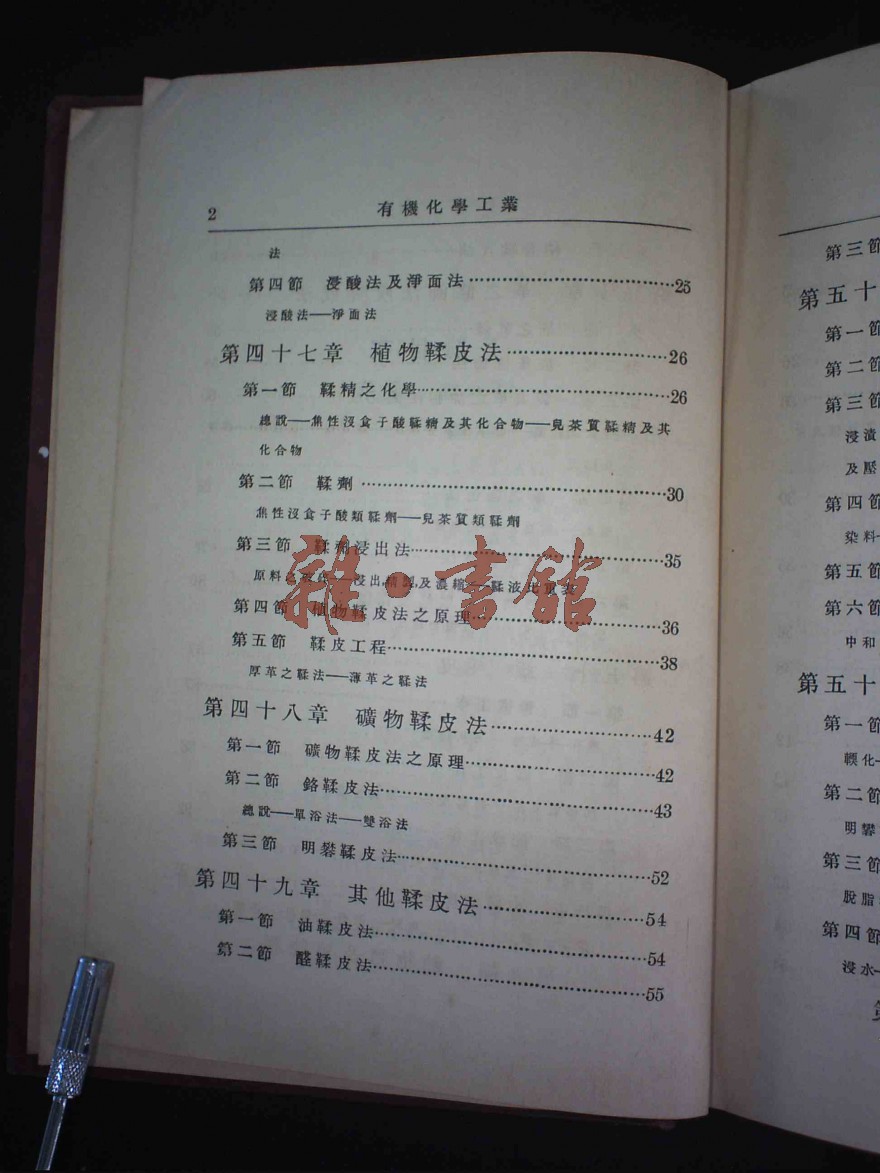 2 有機化學工業
法
第四節 浸酸法及淨面法……25
浸酸法——淨面法
第四十七章 植物鞣皮法……26
第一節 鞣精之化學……26
總說——焦性沒食子酸鞣精及其化合物——兒茶質鞣精及其
化合物
第二節 鞣劑……30
焦性沒食子酸類鞣劑——兒茶質類鞣劑
第三節 鞣劑浸出法……35
原料之——浸出——及濃縮——鞣液比重表
第四節 植物鞣皮法之原理……36
第五節 鞣皮工程……38
厚革之鞣法——薄革之鞣法
第四十八章 礦物鞣皮法……42
第一節 礦物鞣皮法之原理……42
第二節 鉻鞣皮法……43
總說——單浴法——雙浴法
第三節 明礬鞣皮法……52
第四十九章 其他鞣皮法……54
第一節 油鞣皮法……54
第二節 醛鞣皮法……55
雜·書館
第三節
第五十
第一節
第二節
第三節
浸漬
及壓
第四節
染料
第五節
第六節
中和
第五十
第一節
第二節
明礬
第三節
脫脂
第四節
浸水